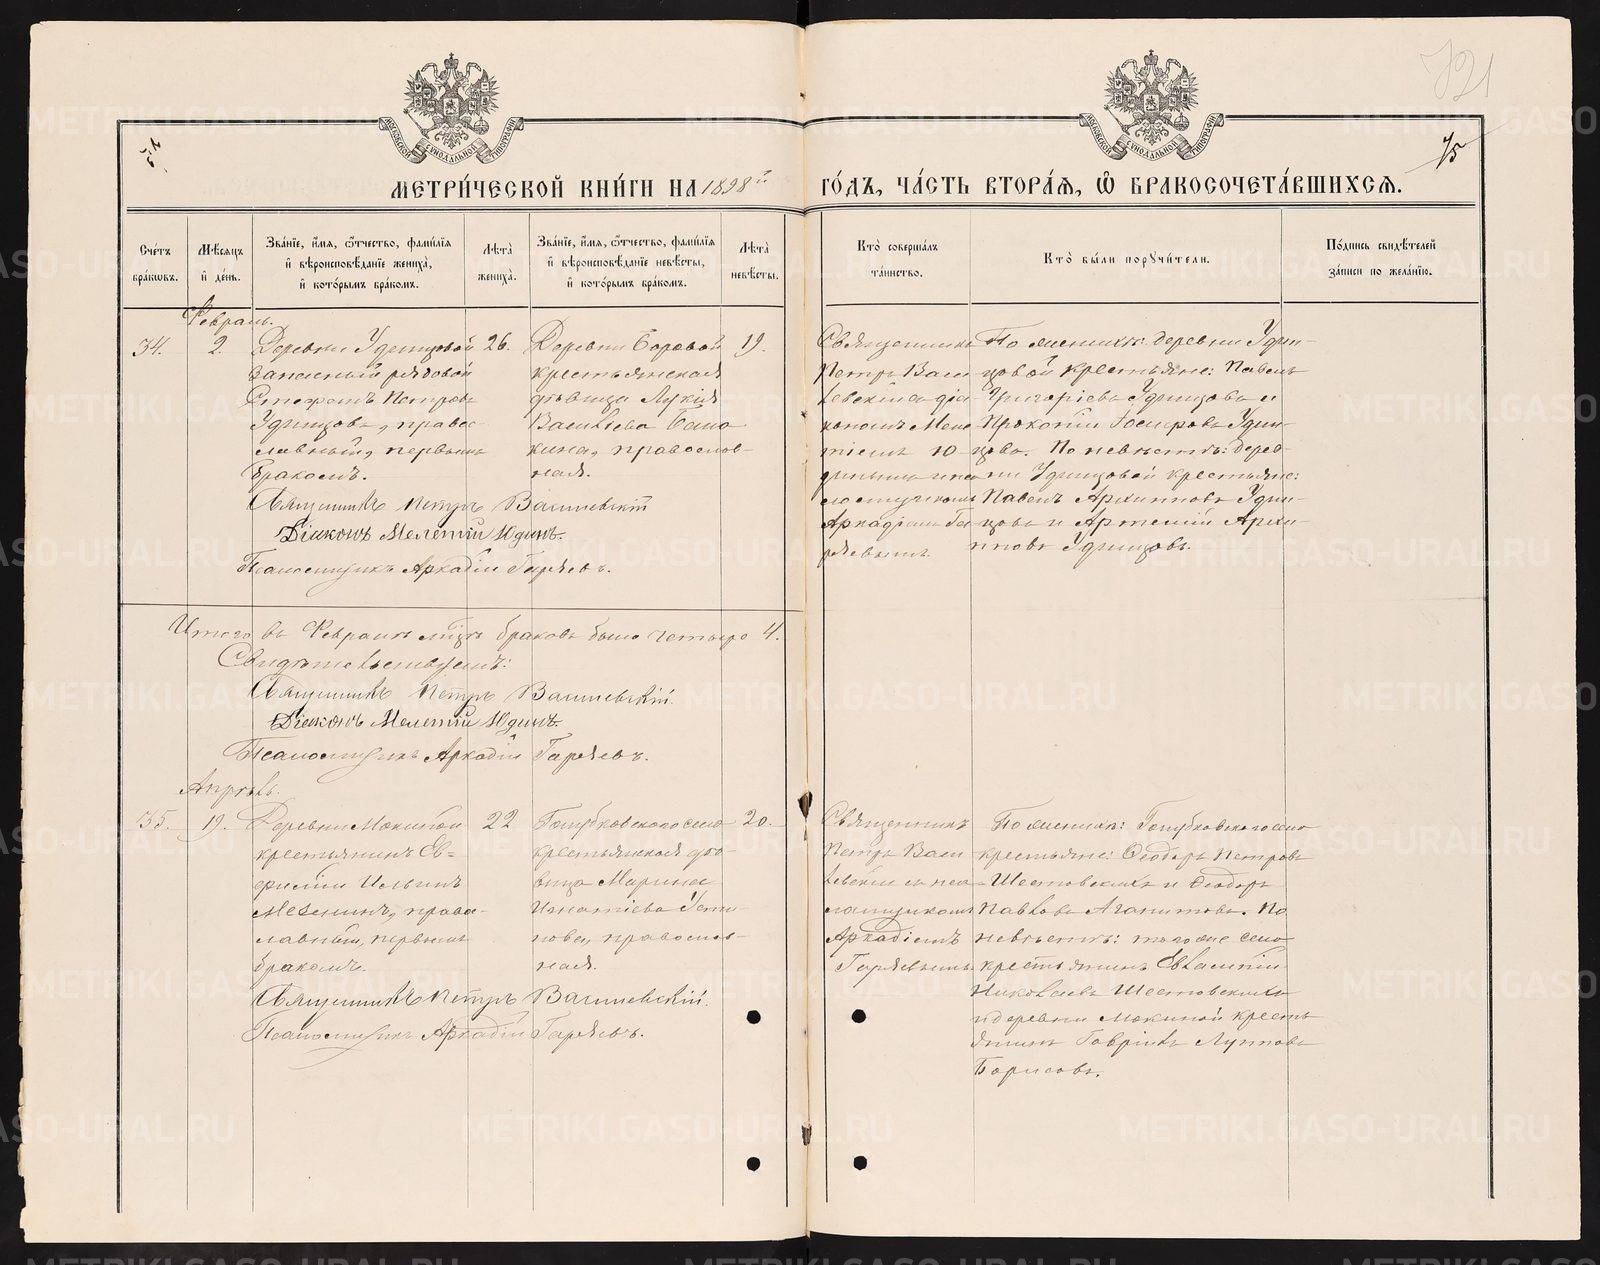 721
75
МЕТРИ́ЧЕСКОЙ КНИ́ГИ НА 1898й ГО́ДЪ, ЧА́СТЬ ВТОРА́Я, Ѽ БРАКОСОЧЕТА́ВШИХСЯ.
Сче́тъ бра́кѡвъ.
Мѣ́сяцъ и҆ де́нь.
Зва́нїе, и҆́мя, ѻ҆́тчество, фами́лїя
и҆ вѣроисповѣ́данїе жениха̀,
и҆ кото́рымъ бра́комъ.
Лѣта̀ жениха̀.
Зва́нїе, и҆́мя, ѻ҆́тчество, фами́лїя
и҆ вѣроисповѣ́данїе невѣ́сты,
и҆ кото́рымъ бра́комъ.
Лѣта̀ невѣ́сты.
Кто̀ соверша́лъ
та́инство.
Кто̀ бы́ли порꙋчи́тели.
По́дпись свидѣ́телей
за́писи по жела́нїю.
Февраль.
34.
2.
Деревни Удинцовой
запасный рядовой
Стефанъ Петровъ
Удинцовъ, право-
славный, первымъ
бракомъ.
26.
Деревни Боровой
крестьянская
дѣвица Лукія
Васильева
православ-
ная.
19.
Священникъ
Петръ Васи
левскій съ діа
кономъ Меле
тіемъ Ю-
динымъ и пса
ломщикомъ
Аркадіемъ Га
ряевымъ
По женихѣ: деревни Удин-
цовой крестьяне: Павелъ
Григоріевъ Удинцовъ и
Прокопій Удин-
цовъ. По невѣстѣ: дерев-
ни Удинцовой крестьяне:
Павелъ Архиповъ Удин-
цовъ и Артемій Архи-
повъ Удинцовъ.
Священникъ Петръ Василевскій
Діаконъ Мелетій Юдинъ.
Псаломщикъ Аркадій Гаряевъ.
Итого въ Февралѣ мцѣ браковъ было четыре 4.
Свидѣтельствуемъ:
Священникъ Петръ Василевскій.
Діаконъ Мелетій Юдинъ.
Псаломщикъ Аркадій Гаряевъ.
Апрѣль.
35.
19.
Деревни Мокиной
крестьянинъ Ев-
фимій Ильинъ
Мезенинъ, право-
славный, первымъ
бракомъ.
22
Голубковскаго села
крестьянская дѣ-
вица Марина
Игнатіева Усти-
нова, православ-
ная.
20.
Священникъ
Петръ Васи
левскій съ пса
ломщикомъ
Аркадіемъ
Гаряевымъ
По женихѣ: Голубковскаго села
крестьяне: Ѳеодоръ Петровъ
Шестовскихъ и Ѳеодоръ
Павловъ Агапитовъ. По
невѣстѣ: того же села
крестьянинъ Евлампій
Николаевъ Шестовскихъ
и деревни Мокиной кресть
янинъ Гавріилъ Лупповъ
Борисовъ.
Священникъ Петръ Василевскій.
Псаломщикъ Аркадій Гаряевъ.
METRIKI.GASO-URAL.RU